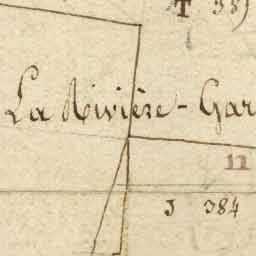 La Rivière-Gar
11
J 384